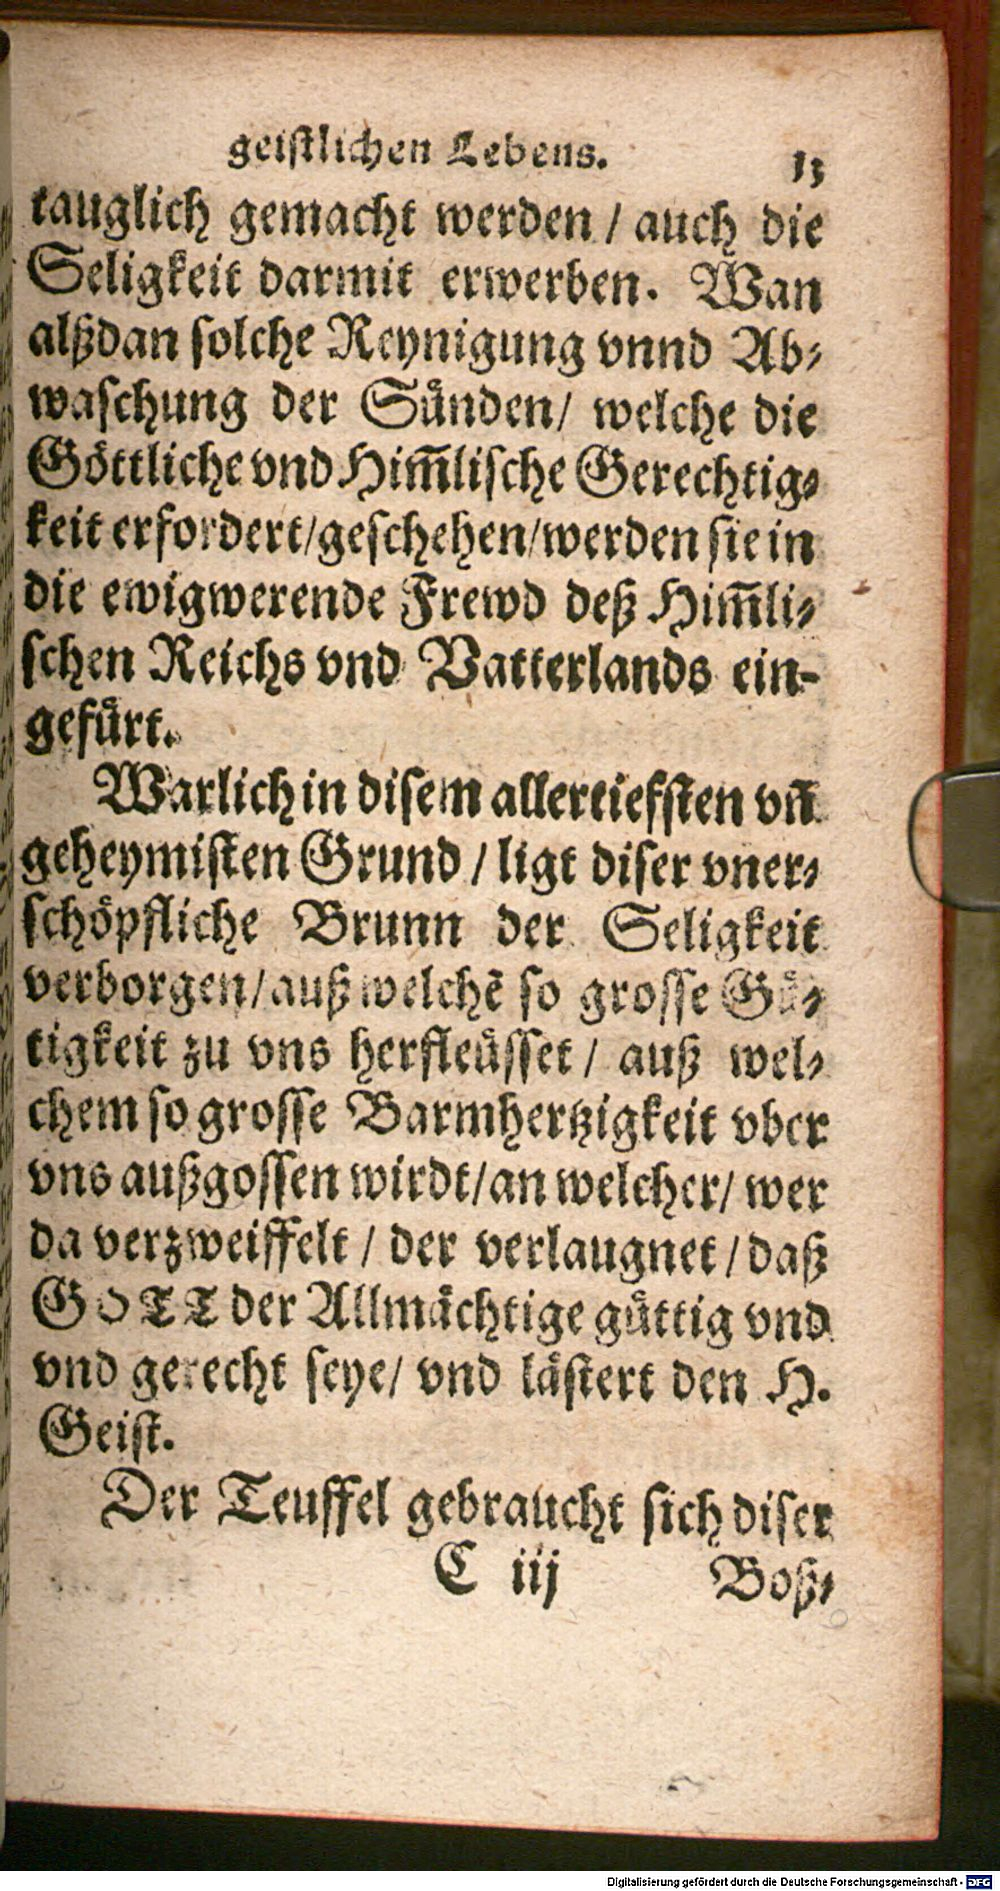 geistlichen Lebens. 13
tauglich gemacht werden / auch die
Seligkeit darmit erwerben. Wan
alßdan solche Reynigung vnnd Ab⸗
waschung der Sünden/ welche die
Göttliche vnd Him̃lische Gerechtig⸗
keit erfordert/geschehen/werden sie in
die ewigwerende Frewd deß Him̃li⸗
schen Reichs vnd Vatterlands ein-
gefürt.
Warlich in disem allertiefsten vñ
geheymisten Grund / ligt diser vner⸗
schöpfliche Brunn der Seligkeit
verborgen/auß welchẽ so grosse Gü⸗
tigkeit zu vns herfleüsset / auß wel⸗
chem so grosse Barmhertzigkeit vber
vns außgossen wirdt/an welcher/ wer
da verzweiffelt / der verlaugnet / daß
GOTT der Allmächtige güttig vnd
vnd gerecht seye/ vnd lästert den H.
Geist.
Der Teuffel gebraucht sich diser
C iij Boß⸗
Digitalisierung gefördert durch die Deutsche Forschungsgemeinschaft - DFG